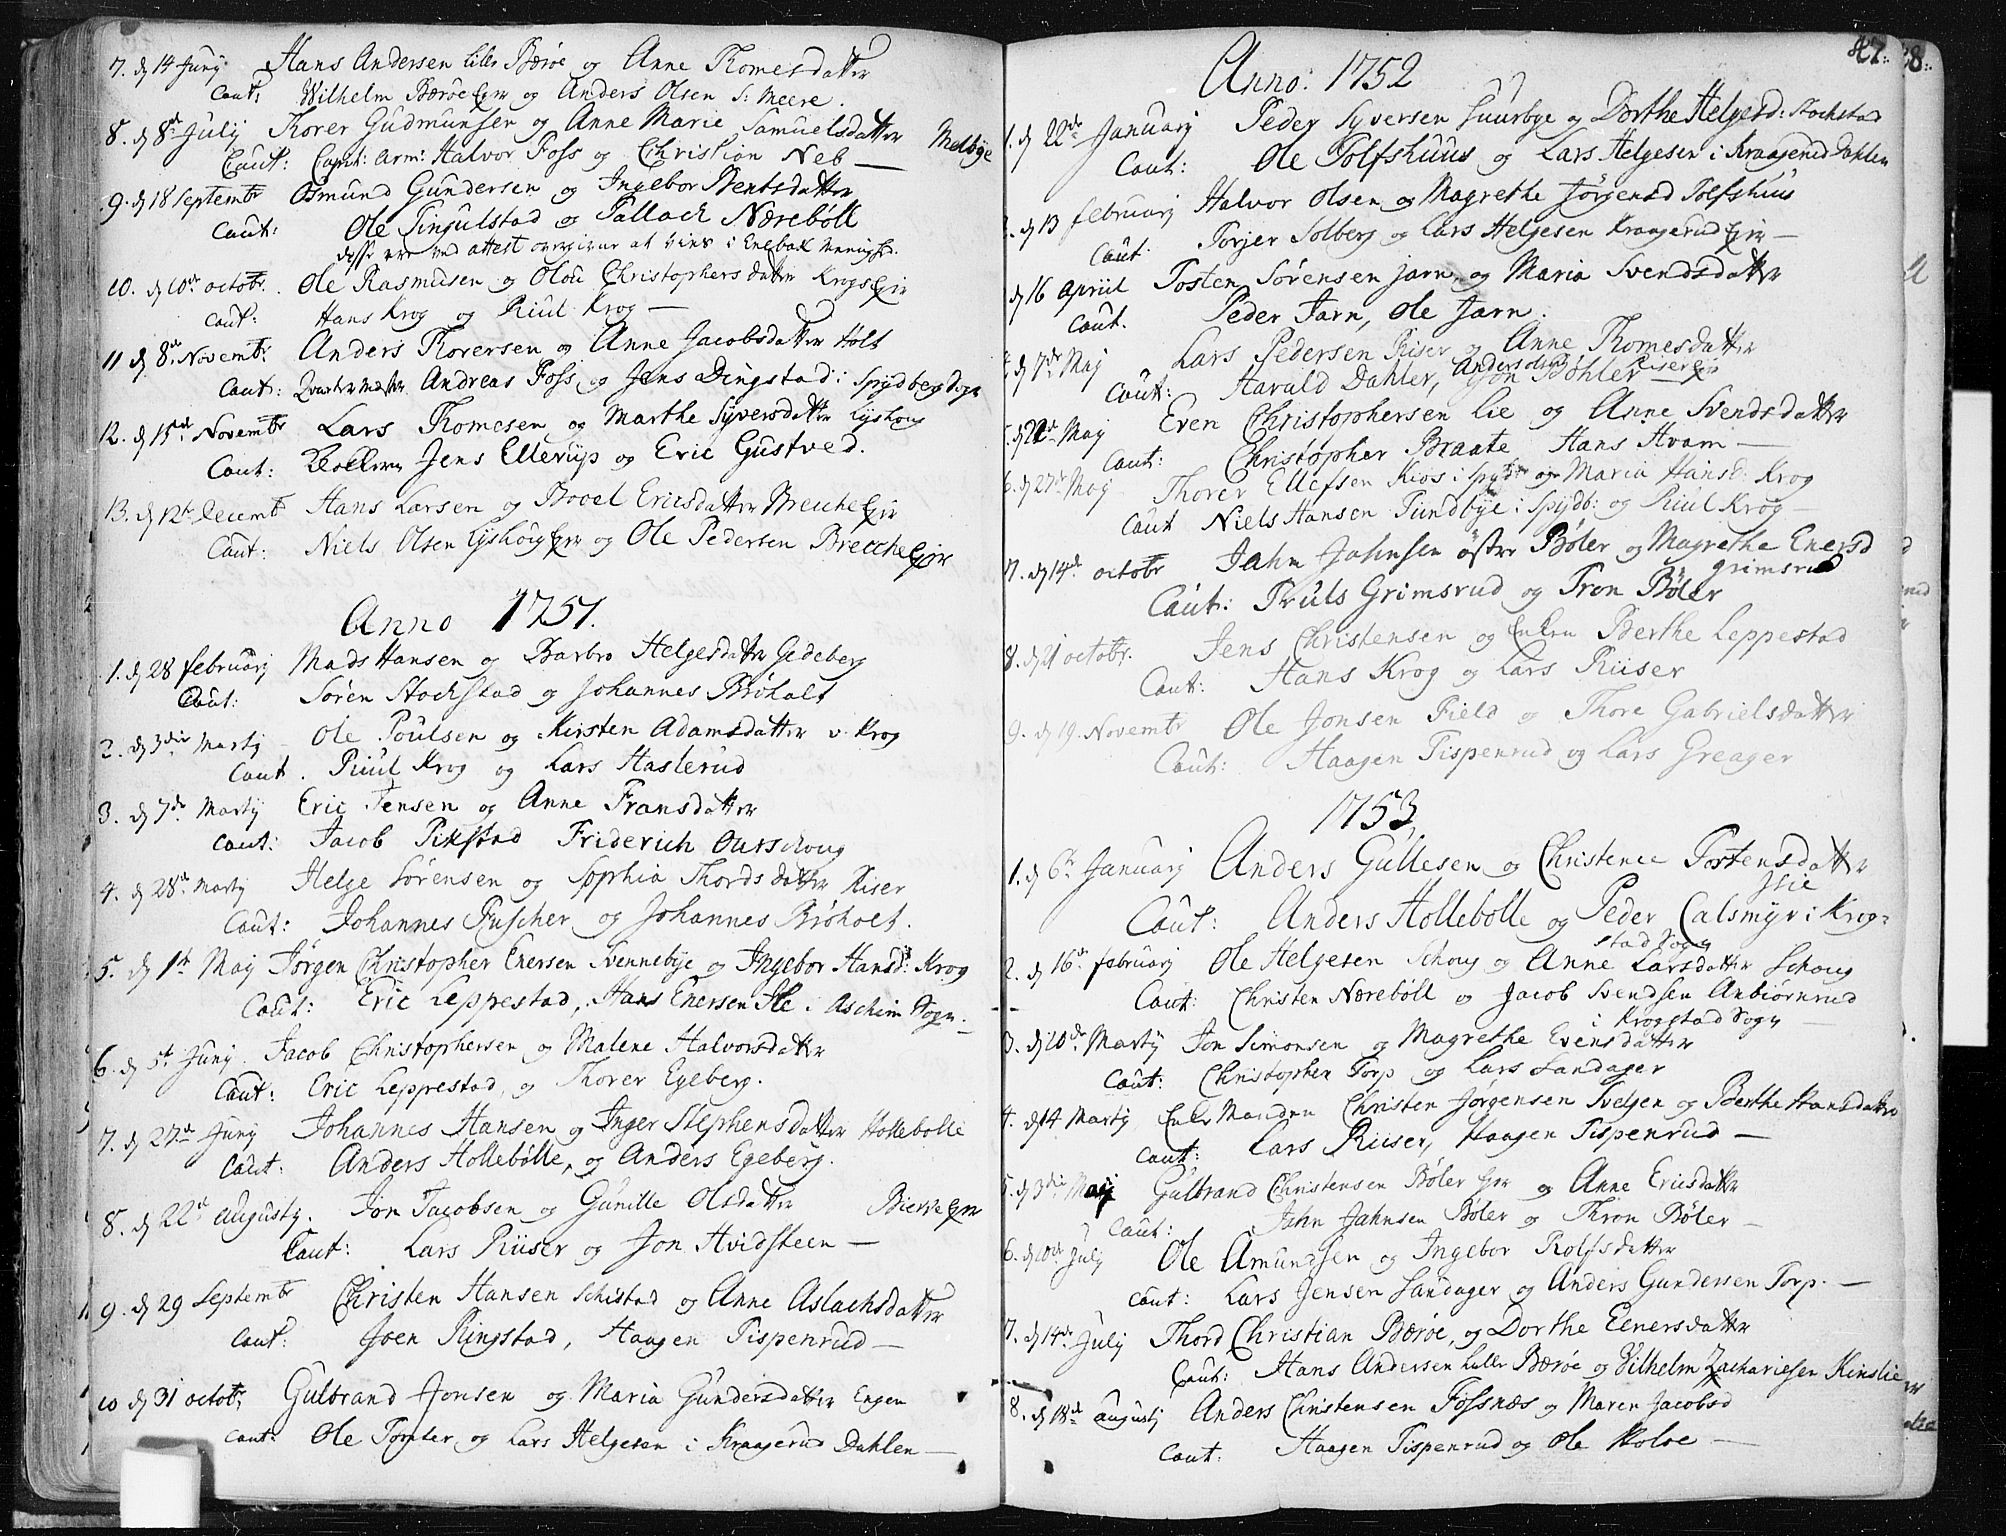 7. d 14 Junij Hans Andersen lille Bærøe og Anne Thomesdatter
Caut: Wilhelm Bærøe Eier og Anders Olsen S: Meere.
8. d 8de Julij Thorer Gudmunsen og Anne Marie Samuelsdatter Melbye
Caut: Capit: arm: Halvor Foss og Christian Neb —
9. d 18 Septembr Osmund Gundersen og Ingebor Bentsdatter
Caut: Ole Tingulstad og Pallack Nærebøll
disse ere ved attest overgivne at vies i Enebak Menighed.
10. d 10de octobr. Ole Rasmusen og Olou Christophersdatter Krogs Eie
Caut: Hans Krog og Riul Krog —
11 d 8de Novembr: Anders Thorersen og Anne Jacobsdatter Holt
Caut: Qvartermester Andreas Foss og Jens Dingstad i Spydberg Sogn
12. d 15de Novembr Lars Thomesen og Marthe Syversdatter Lyshoug
Caut: Jens Ellerup og Eric Gustved.
13. d 12te Decembr Hans Larsen og Booel Ericsdatter Breche Eie
Caut: Niels Olsen Lyshoug Eier og Ole Pedersen Breche Eie
Anno 1751.
1. d 28 februarij Mads Hansen og Barbro Helgesdatter Gedeberg
Caut: Søren Stochstad og Johannes Brøholt
2. d 3die Martij Ole Poulsen og Kirsten Adamsdatter v. Krog
Caut. Riul Krog og Lars Haslerud
3. d 7de Martij Eric Jensen og Anne Fransdatter
Caut: Jacob Pikstad Friderich Ourschoug
4. d 28de Martij Helge Sørensen og Sophia Thordsdatter Riser
Caut: Johannes Fuscher og Johannes Brøholt.
5. d 1te Maij Jørgen Christopher Enersen Svennebye og Ingebor Hansd: Krog
Caut: Eric Leppestad, Hans Enersen Ile i Aschim Sogn.
6. d 5te Junij Jacob Christophersen og Malene Halvorsdatter
Caut: Eric Leppestad, og Thorer Egeberg.
7. d 27de Junij Johannes Hansen og Inger Stephensdatter Hollebolle
Caut: Anders Hollebølle, og Anders Egeberg.
8. d 22de augustij. Jon Jacobsen og Gunille Olsdatter Bierke Eie
Caut: Lars Riiser og Jon Hvidsteen —
9. d 29 Septembr Christen Hansen Schistad og Anne Aslachsdatter
Caut: Joen Ringstad, Haagen Tispenrud —
10 d 31 octobr, Gulbrand Jonsen og Maria Gundersdatter Engen
Caut: Ole Tomter og Lars Helgesen i Kraagerud Dahlen —
47. 8.
Anno: 1752
1. d 22de Januarij Peder Syversen Suurbye og Dorthe Helgesd: Stochstad
Caut: Ole Tolfshuus og Lars Helgesen i Kraagerud Dahlen
2. d 13 februarij Halvor Olsen og Magrethe Jørgensd Tolfshuus
Caut: Torjer Solberg og Lars Helgesen Kraagerud Eie —
d 16 Apriil Tosten Sørensen Jarn og Maria Svendsdatter
Caut. Peder Jarn, Ole Jarn.
d 7de Maj Lars Pedersen Riser og Anne Thomesdatter
Anders Riser Eie
Caut: Harald Dahler, Jon Bøhler —
d 22de Maj Even Christophersen Lie og Anne Svendsdatter
Caut: Christopher Braate Hans Hvam —
6. d 27de Maj Thorer Ellefsen Kios i Spydb: og Maria Hansd: Krog
Caut Niels Hansen Tundbye i Spydb: og Riul Krog —
7. d 14de octobr Jahn Jahnsen østre Bøler og Magrethe Enersd
Grimsrud
Caut: Truls Grimsrud og Tron Bøler
8. d 21 octobr. Jens Christensen og Enken Berthe Leppestad
Caut: Hans Krog og Lars Riiser
9. d 19. Novembr Ole Jonsen Field og Thore Gabrielsdatter
Caut: Haagen Tispenrud og Lars Greager
1753,
1. d 6te Januarij Anders Gullesen og Christence Tostensdatter
Lie
Caut: Anders Hollebølle og Peder Calsmyr i Krog=
stad Sogn
2. d 16de februarij Ole Helgesen Schoug og Anne Larsdatter Schoug
Caut: Christen Nærebøll og Jacob Svendsen Anbiørnrud
i Krogstad Sogn
3. d 20de Martij Jon Simonsen og Magrethe Evensdatter
Caut: Christopher Torp og Lars Sandager
4. d 14 Martij Enke Manden Christen Jørgensen Svelgen og Berthe Hansdatter
Caut: Lars Riiser, Haagen Tispenrud —
5. d 3die Maij Gulbrand Christensen Bøler Eie og Anne Ericsdatter
Caut: Jahn Jahnsen Bøler og Thron Bøler —
6. d 10de Julij Ole Amundsen og Ingebor Rolfsdatter
Caut: Lars Jensen Sandager og Anders Gundersen Torp. —
7. d 14de Julij Thord Christian Bærøe, og Dorthe Eenersdatter
Caut: Hans Andersen Lille Bærøe og Vilhelm Zachariesen Kinslie
8. d 18de augustij Anders Christensen Fossnæs og Maren Jacobsd
Caut. Haagen Tispenrud og Ole Kolsoe —